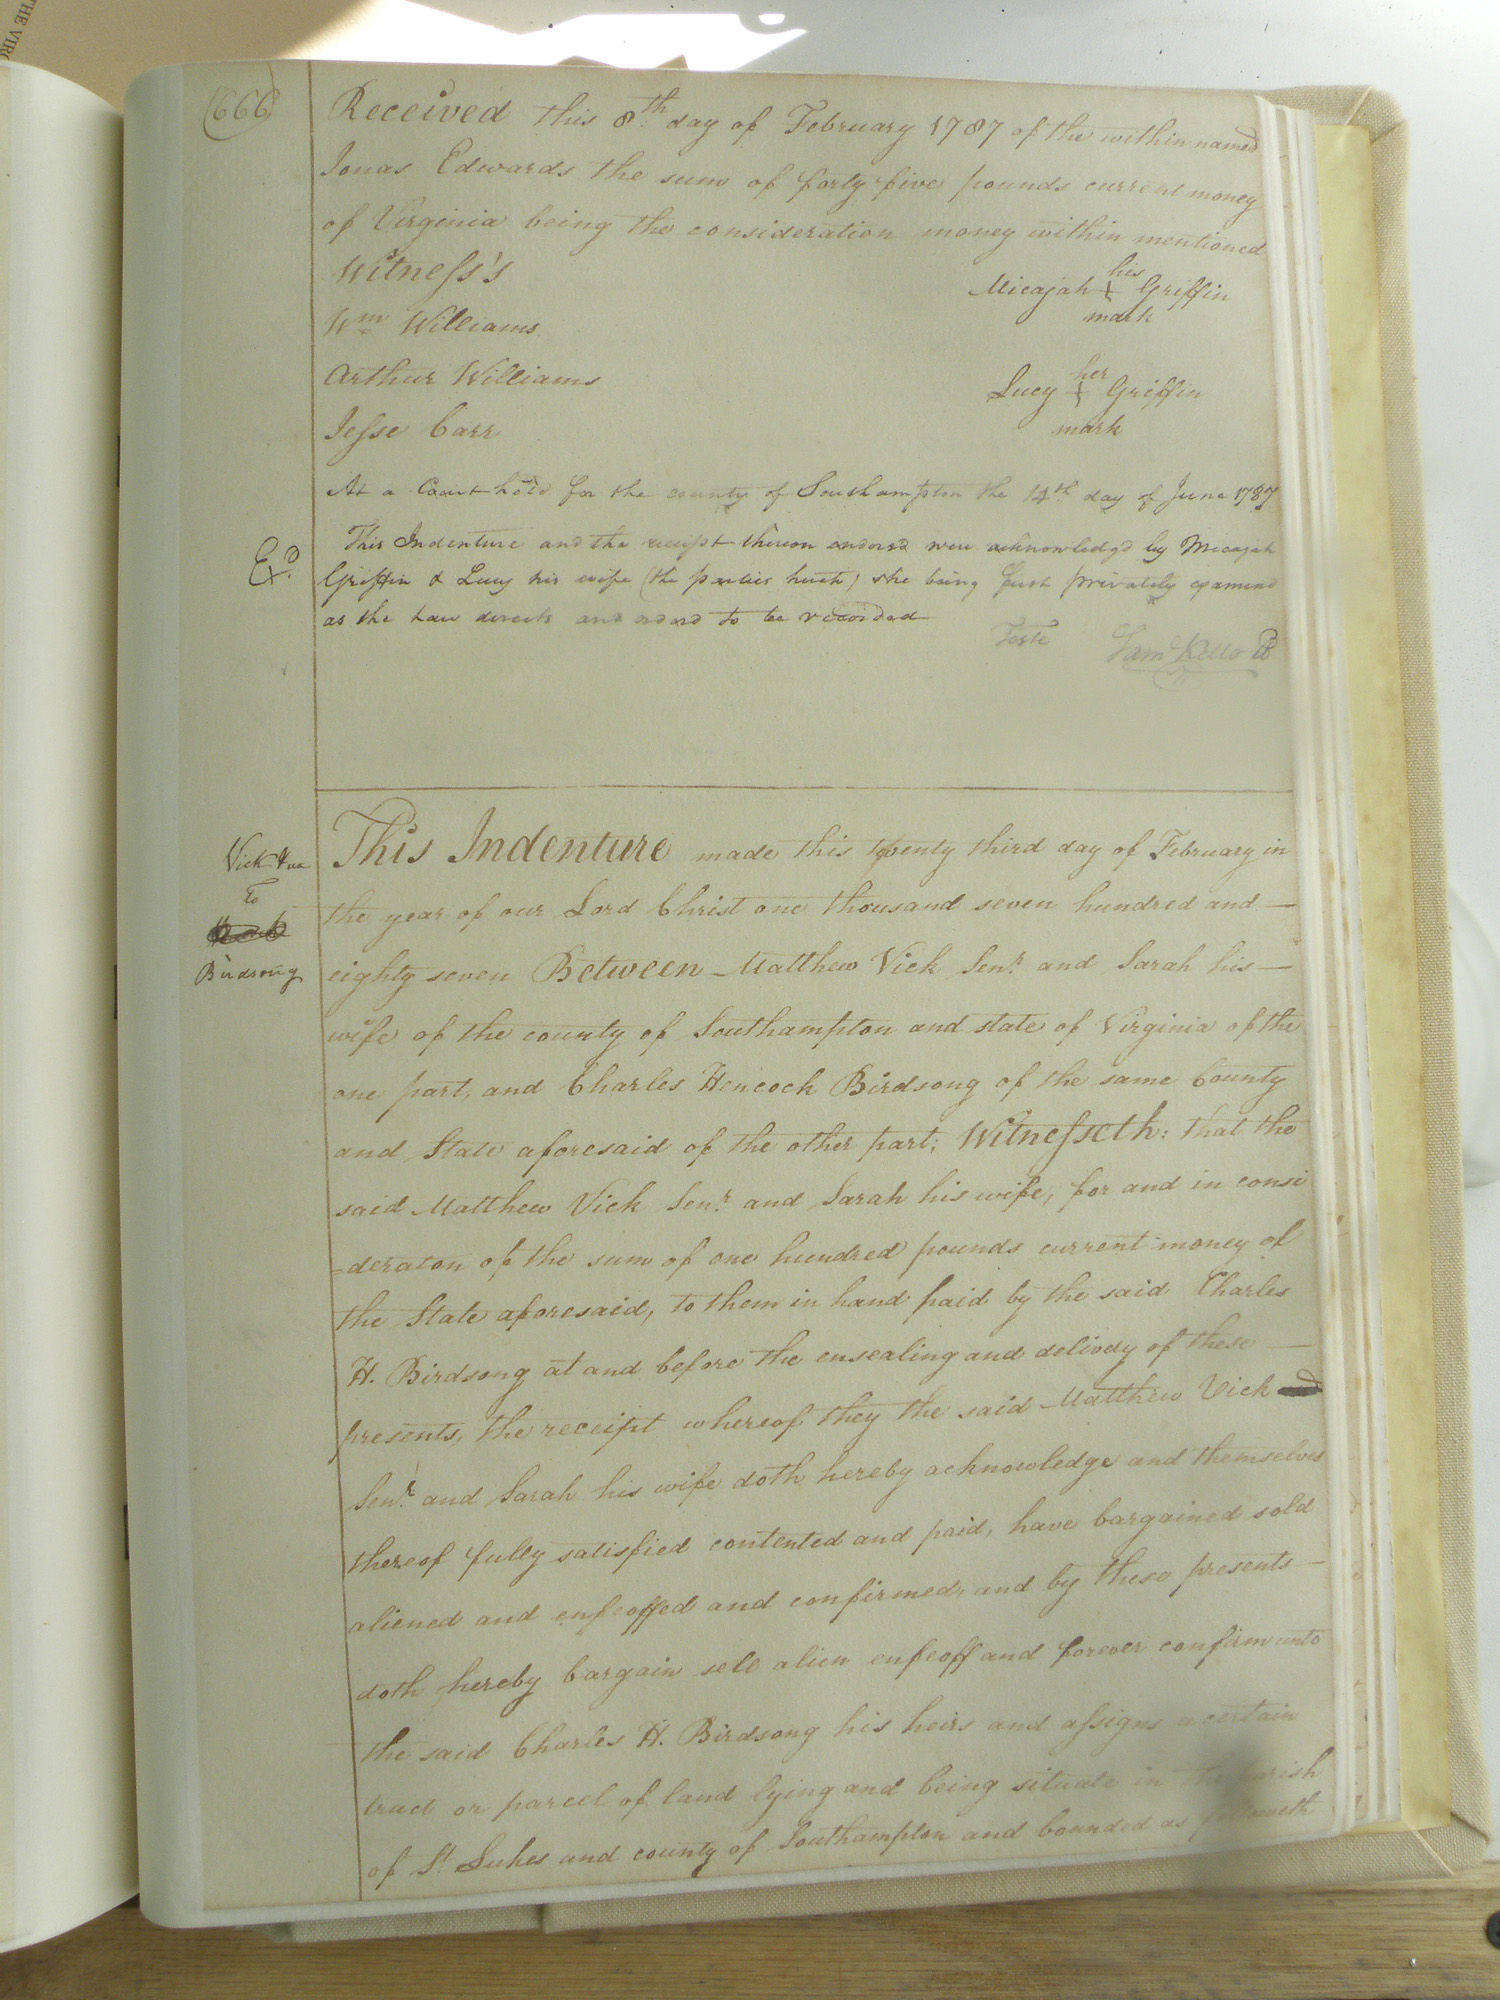 THE VIRG
666
Received this 8th day of February 1787 of the within named
Jonas Edwards the sum of forty five pounds current money
of Virginia being the consideration money within mentioned
Witness's
his
Micajah Griffin
mark
Wm Williams
Arthur Williams
her
Lucy Griffin
mark
Jesse Carr
At a Court held for the county of Southampton the 14th day of June 1787
Exd.
This Indenture and the receipt thereon endorsd were acknowledgd by Micajah
Griffin & Lucy his wife (the parties hereto) she being first privately examind
as the Law directs and orderd to be recorded
Teste
Saml Kello
Vick & ux
To
Birdsong
This Indenture made this twenty third day of February in
the year of our Lord Christ one thousand seven hundred and —
eighty seven Between Matthew Vick Senr. and Sarah his —
wife of the county of Southampton and state of Virginia of the
one part, and Charles Hencock Birdsong of the same County
and State aforesaid of the other part; Witnesseth: that the
said Matthew Vick Senr. and Sarah his wife, for and in consi
-deraton of the sum of one hundred pounds current money of
the State aforesaid, to them in hand paid by the said Charles
H. Birdsong at and before the ensealing and delivery of these —
presents, the receipt whereof they the said Matthew Vick
Senr. and Sarah his wife doth hereby acknowledge and themselves
thereof fully satisfied contented and paid, have bargained sold
aliened and enfeoffed and confirmed, and by these presents —
doth hereby bargain sell alien enfeoff and forever confirm unto
the said Charles H. Birdsong his heirs and assigns a certain
tract or parcel of land lying and being situate in the parish
of St. Lukes and county of Southampton and bounded as followeth